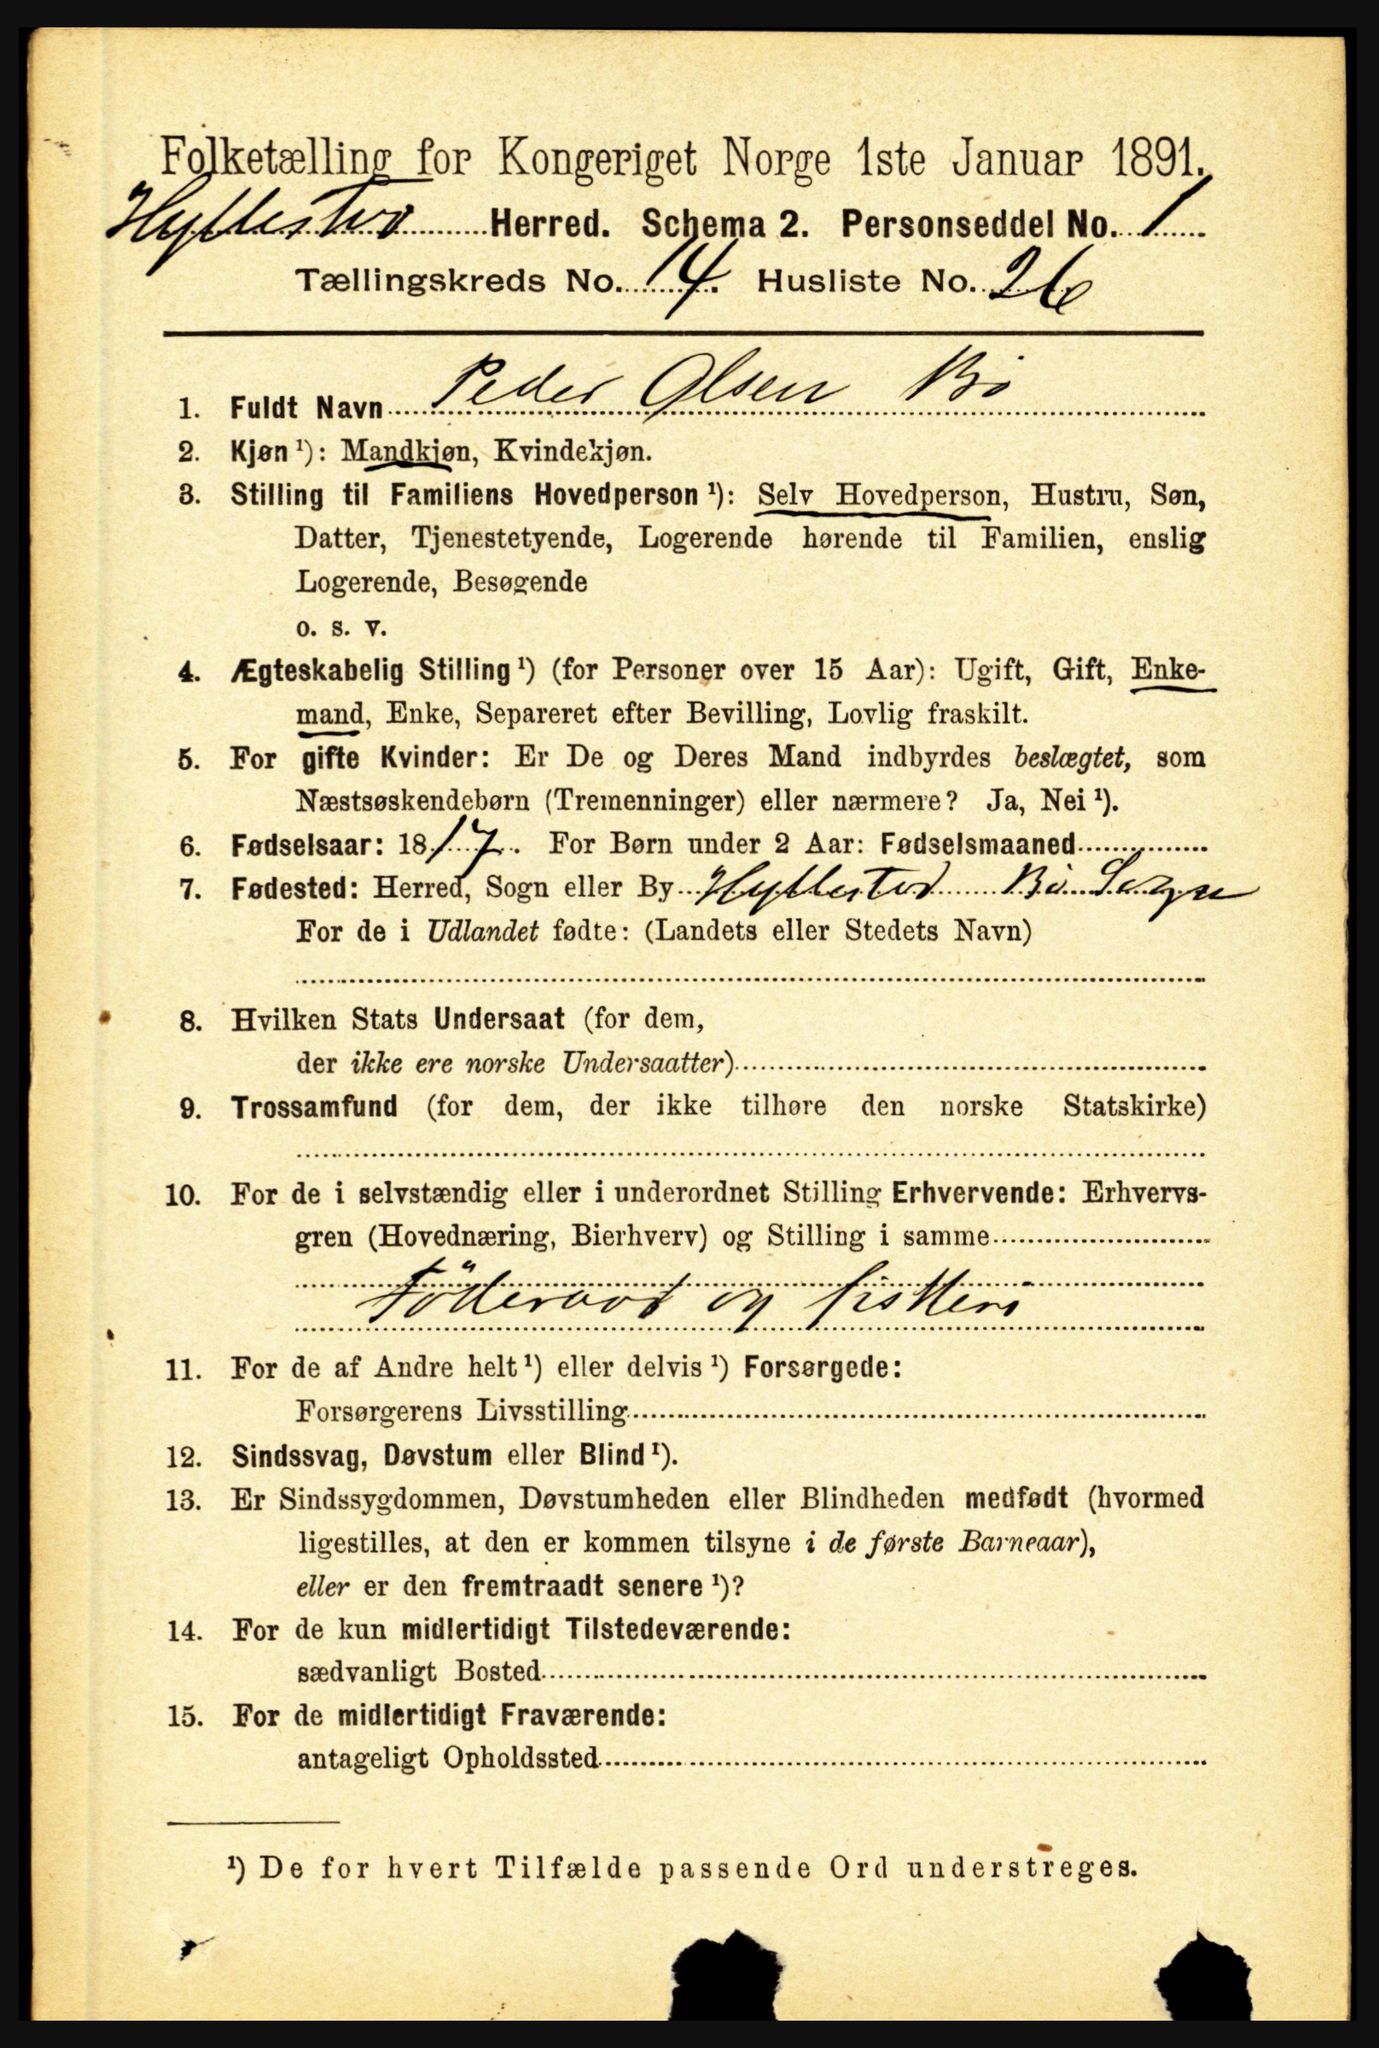 Folketælling for Kongeriget Norge 1ste Januar 1891.
Hyllestad Herred. Schema 2. Personseddel No. 1
Tællingskreds No. 14. Husliste No. 26
1. Fuldt Navn Peder Olsen Bö
2. Kjøn ¹): Mandkjøn, Kvindekjøn.
3. Stilling til Familiens Hovedperson ¹): Selv Hovedperson, Hustru, Søn,
Datter, Tjenestetyende, Logerende hørende til Familien, enslig
Logerende, Besøgende
o. s. v.
4. Ægteskabelig Stilling ¹) (for Personer over 15 Aar): Ugift, Gift, Enke-
mand, Enke, Separeret efter Bevilling, Lovlig fraskilt.
5. For gifte Kvinder: Er De og Deres Mand indbyrdes beslægtet, som
Næstsøskendebørn (Tremenninger) eller nærmere? Ja, Nei ¹).
6. Fødselsaar: 1817. For Børn under 2 Aar: Fødselsmaaned
7. Fødested: Herred, Sogn eller By Hyllestad Bö Sogn
For de i Udlandet fødte: (Landets eller Stedets Navn)
8. Hvilken Stats Undersaat (for dem,
der ikke ere norske Undersaatter)
9. Trossamfund (for dem, der ikke tilhøre den norske Statskirke)
10. For de i selvstændig eller i underordnet Stilling Erhvervende: Erhvervs-
gren (Hovednæring, Bierhverv) og Stilling i samme
Föderaad og fiskeri
11. For de af Andre helt ¹) eller delvis ¹) Forsørgede:
Forsørgerens Livsstilling
12. Sindssvag, Døvstum eller Blind ¹).
13. Er Sindssygdommen, Døvstumheden eller Blindheden medfødt (hvormed
ligestilles, at den er kommen tilsyne i de første Barneaar),
eller er den fremtraadt senere ¹)?
14. For de kun midlertidigt Tilstedeværende:
sædvanligt Bosted
15. For de midlertidigt Fraværende:
antageligt Opholdssted
¹) De for hvert Tilfælde passende Ord understreges.